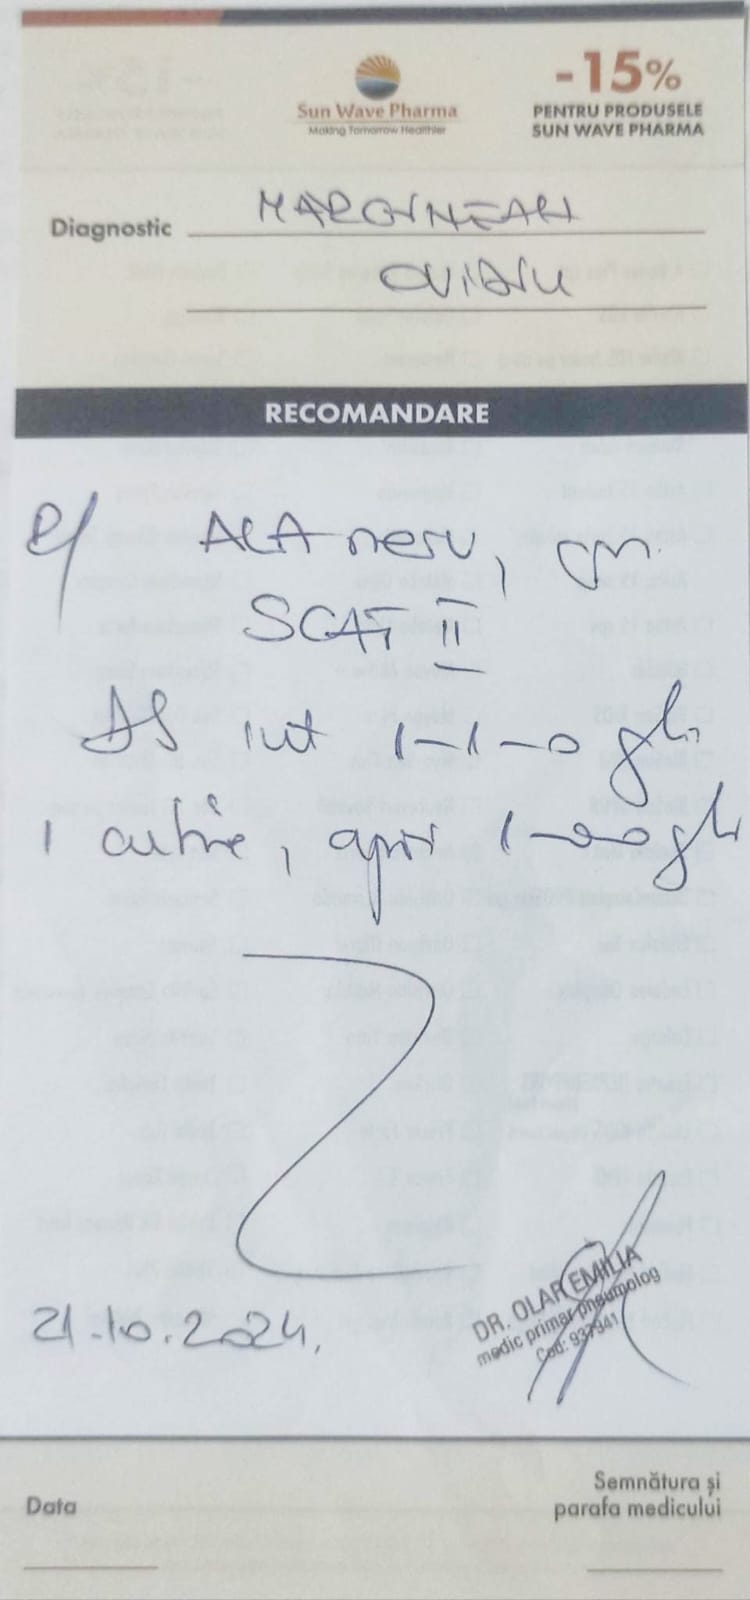 Sun Wave Pharma
Making Tomorrow Healthier
-15%
PENTRU PRODUSELE
SUN WAVE PHARMA
Diagnostic MARGINEAN
OVIDIU
RECOMANDARE
ALA nerv, cm.
SCAT II
DS int 1-1-0 gli,
1 cutie, apoi 1-0-0 gli
21.10.2024.
DR. OLAR EMILIA
medic primar pneumolog
Cod: 937941
Data
Semnătura și
parafa medicului